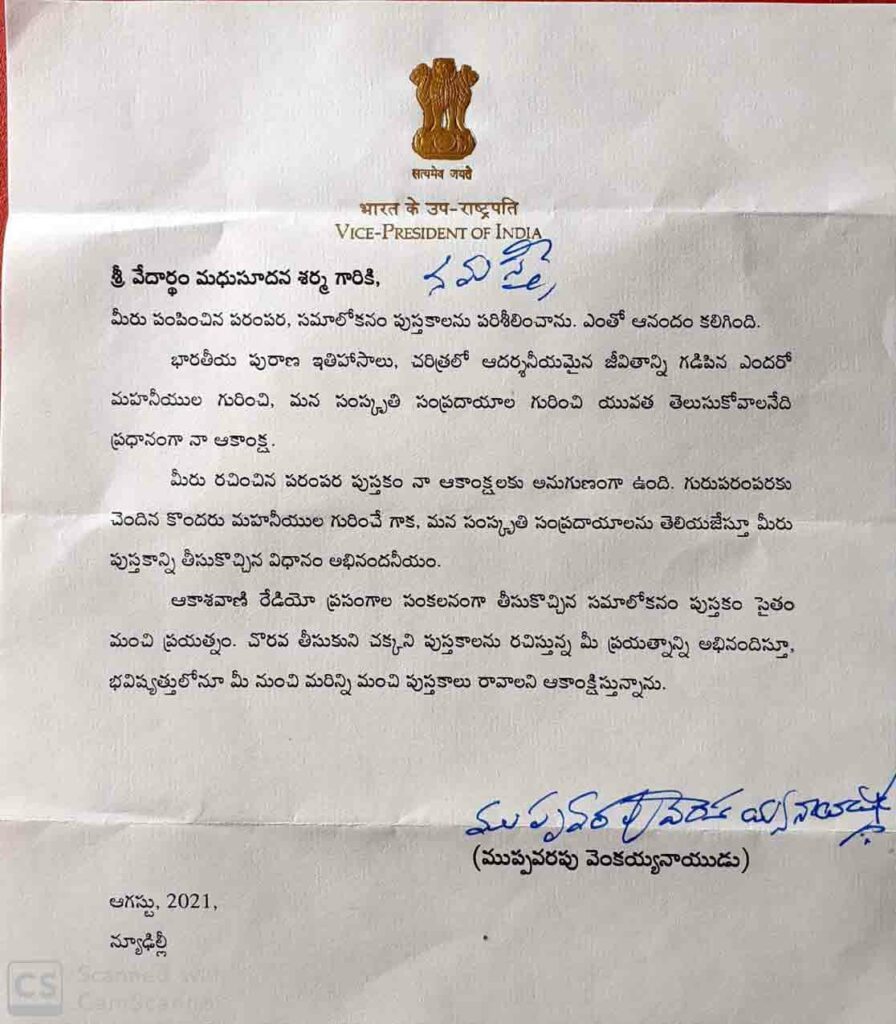 सत्यमेव जयते
भारत के उप-राष्ट्रपति
VICE-PRESIDENT OF INDIA
శ్రీ వేదార్థం మధుసూదన శర్మ గారికి, నమస్తే,
మీరు పంపించిన పరంపర, సమాలోకనం పుస్తకాలను పరిశీలించాను. ఎంతో ఆనందం కలిగింది.
భారతీయ పురాణ ఇతిహాసాలు, చరిత్రలో ఆదర్శనీయమైన జీవితాన్ని గడిపిన ఎందరో
మహనీయుల గురించి, మన సంస్కృతి సంప్రదాయాల గురించి యువత తెలుసుకోవాలనేది
ప్రధానంగా నా ఆకాంక్ష.
మీరు రచించిన పరంపర పుస్తకం నా ఆకాంక్షలకు అనుగుణంగా ఉంది. గురుపరంపరకు
చెందిన కొందరు మహనీయుల గురించే గాక, మన సంస్కృతి సంప్రదాయాలను తెలియజేస్తూ మీరు
పుస్తకాన్ని తీసుకొచ్చిన విధానం అభినందనీయం.
ఆకాశవాణి రేడియో ప్రసంగాల సంకలనంగా తీసుకొచ్చిన సమాలోకనం పుస్తకం సైతం
మంచి ప్రయత్నం. చొరవ తీసుకుని చక్కని పుస్తకాలను రచిస్తున్న మీ ప్రయత్నాన్ని అభినందిస్తూ,
భవిష్యత్తులోనూ మీ నుంచి మరిన్ని మంచి పుస్తకాలు రావాలని ఆకాంక్షిస్తున్నాను.
ముప్పవరపు వెంకయ్యనాయుడు
(ముప్పవరపు వెంకయ్యనాయుడు)
ఆగస్టు, 2021,
న్యూఢిల్లీ
CS Scanned with
CamScanner